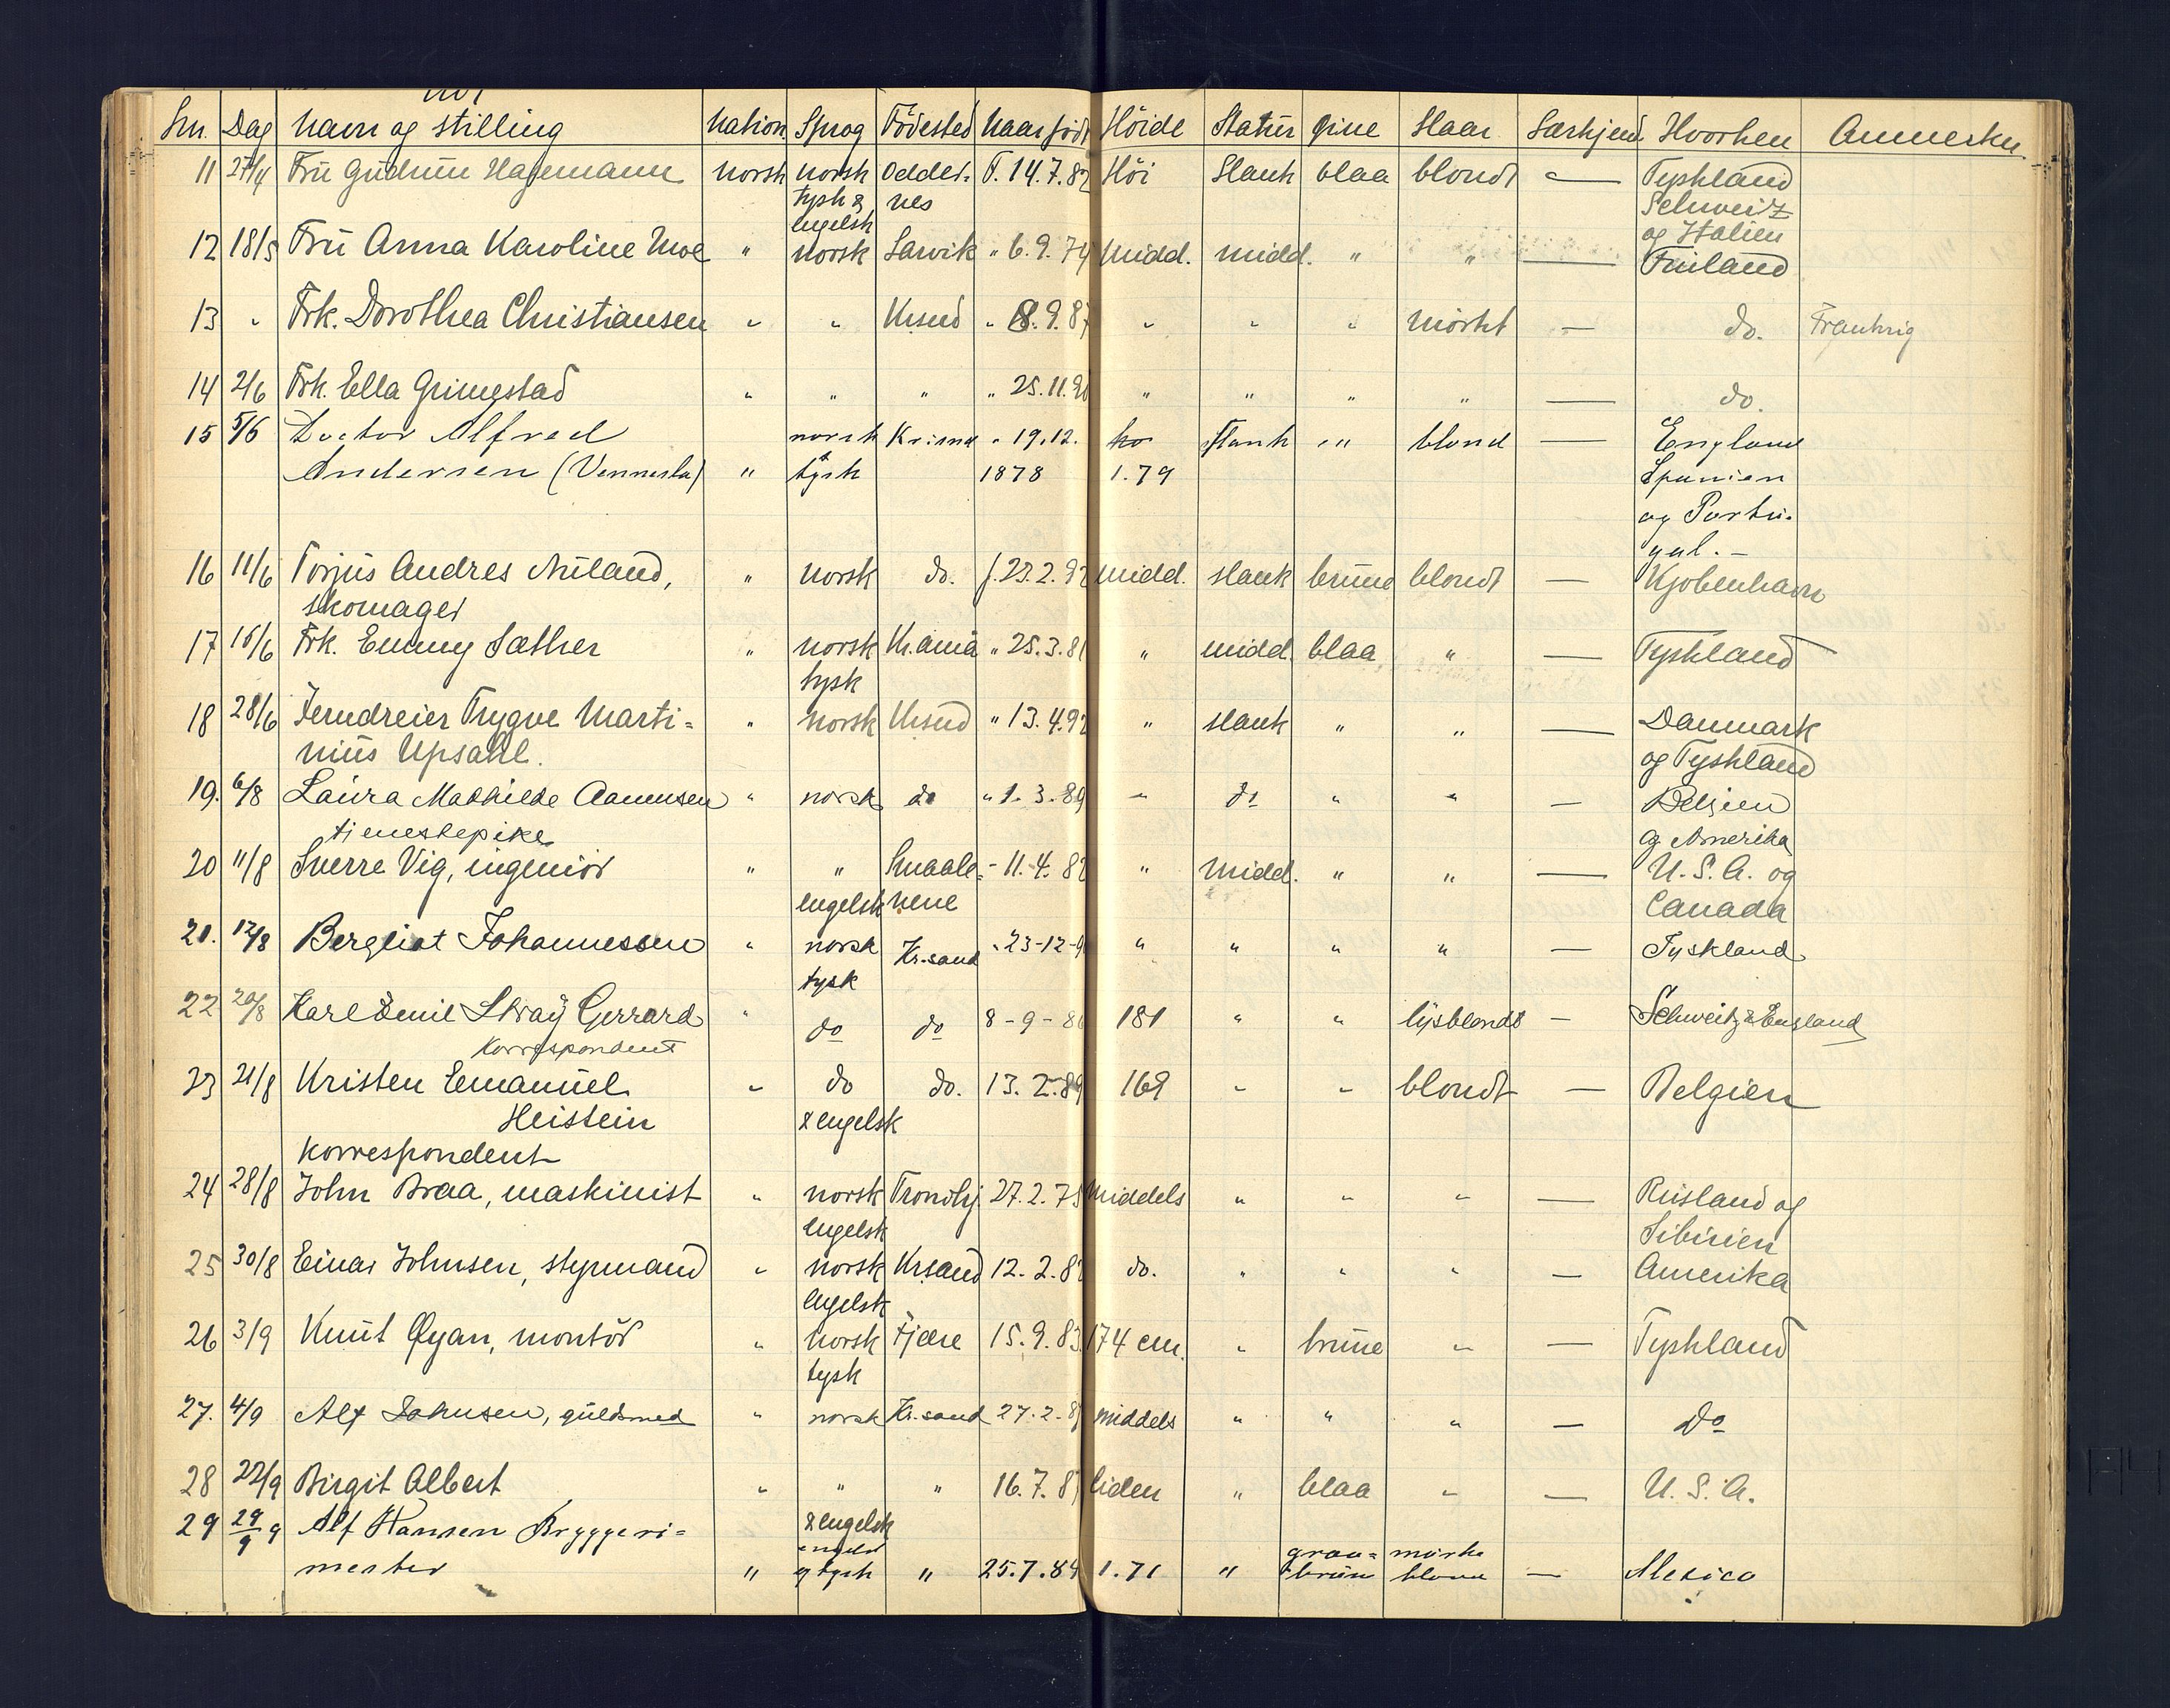 Lnr. Dag Navn og stilling Nation. Sprog Födested Naar födt Höide Statur Øine Haar Særkjend. Hvorhen Anmerkn.
11 27/4 Frü Gudrün Hagemann norsk norsk Odder- F. 14.7.82 Höi Slank blaa blondt — Tyskland
tysk & nes Schweiz
engelsk og Italien
12 18/5 Frü Anna Karoline Moe " norsk Larvik " 6.9.74 midd. midd. " " — Finland
13 " Frk. Dorothea Christiansen " " Krsund " 8.9.87 " " " mörkt — do. Frankrig
14 2/6 Frk. Ella Grimestad " " " " 25.11.90 " " " " — do.
15 5/6 Doctor Alfred norsk Krsand " 19.12. slank " " blond — England
Andersen (Vennesla) " tysk 1878 1.79 Spanien
og Portü-
gal. —
16 11/6 Torjüs Andres Aüland, " norsk do. f. 23.2.92 midd. slank brüne blondt — Kjobenhavn
skomager
17 15/6 Frk. Emmy Sæther " norsk Kr.ania " 25.3.81 " midd. blaa " — Tyskland
tysk
18 28/6 Jerndreier Trygve Marti= " norsk Krsund " 13.4.92 " slank " " — Danmark
niüs Upsahl. og Tyskland
19. 6/8 Laüra Mathilde Aanensen " norsk do " 1.3.89 " do " " — Belgien
tjenestepike og Amerika
20 11/8 Sverre Vig, ingeniör " " Smaale= - 11.4.82 " midd. " " — U.S.A. og
engelsk nene Canada
21. 12/8 Bergliot Johannessen " norsk Kr.sand " 23-12-90 " " " " — Tyskland
tysk
22 20/8 Karl Emil Stray Gerrard " do do 8-9-86 181 " " lysblondt — Schweitz & England
Korrespondent
23 21/8 Kristen Emanüel " do do. 13.2.89 169 " " blondt — Belgien
Heistein & engelsk
korrespondent
24 28/8 John Braa, maskinist " norsk Trondhj 27.2.75 middels " " " — Rüsland og
engelsk Sibirien
25 30/8 Einar Johnsen, styrmand " norsk Krsand 12.2.82 do. " " " — Amerika
engelsk
26 3/9 Knüt Øyan, montör " norsk Fjære 15.9.83 174 cm. " brüne " — Tyskland
tysk
27. 4/9 Alf Johnsen, güldsmed " norsk Kr.sand 27.2.87 middels " " " — Do
28 22/9 Birgit Albert " " " 16.7.87 liden " blaa " — U.S.A.
& engelsk
29 29/9 Alf Hansen Bryggeri= engelsk graa= mörke
mester " og tysk " 25.7.84 1.71 " brüne blond — Mexico